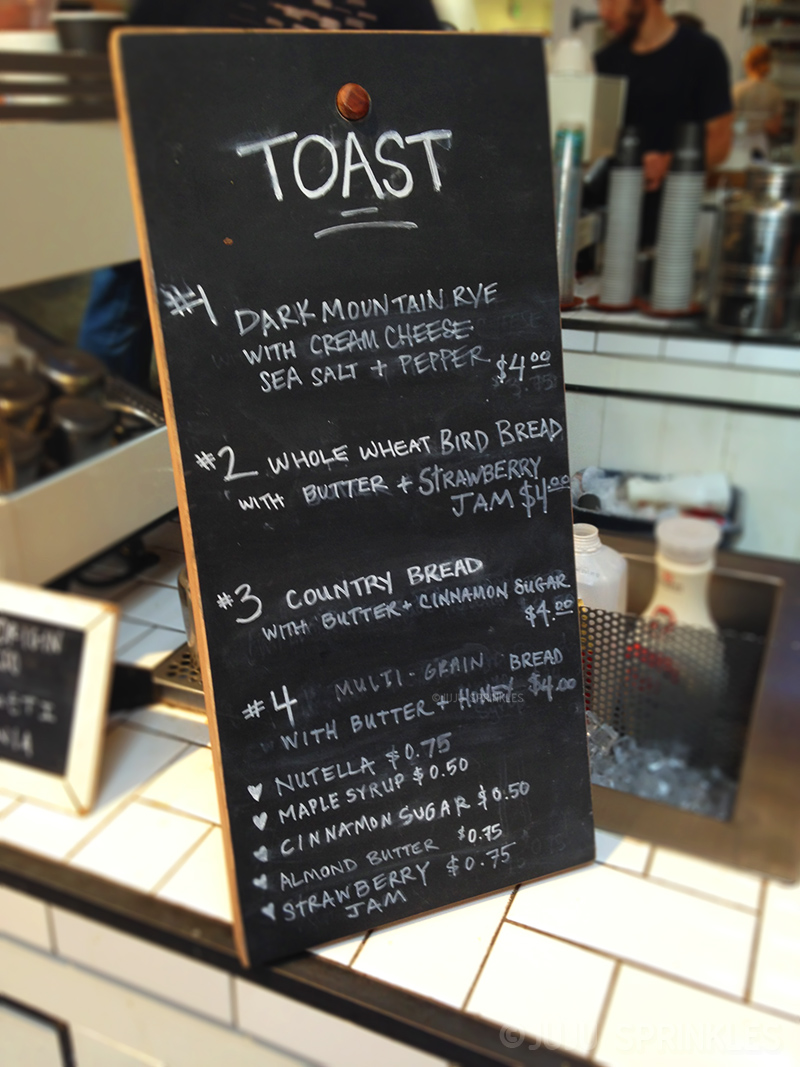 TOAST
#1 DARK MOUNTAIN RYE
WITH CREAM CHEESE
SEA SALT + PEPPER $4.00
#2 WHOLE WHEAT BIRD BREAD
WITH BUTTER + STRAWBERRY
JAM $4.00
#3 COUNTRY BREAD
WITH BUTTER + CINNAMON SUGAR
$4.00
#4 MULTI-GRAIN BREAD
WITH BUTTER + HONEY $4.00
©JUJU SPRINKLES
♥ NUTELLA $0.75
♥ MAPLE SYRUP $0.50
♥ CINNAMON SUGAR $0.50
♥ ALMOND BUTTER $0.75
♥ STRAWBERRY $0.75
JAM
©JUJU SPRINKLES